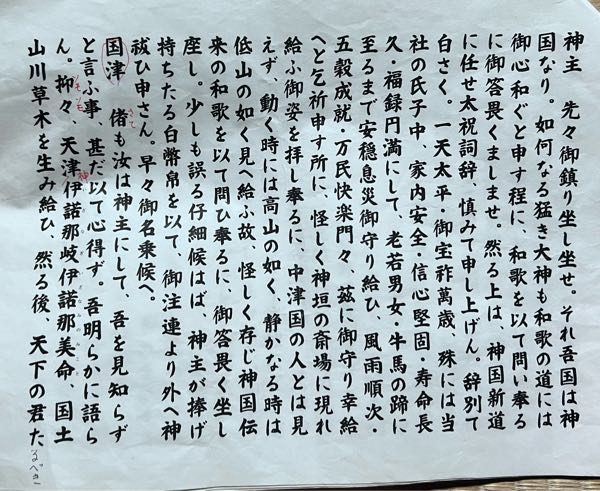 神主　先々御鎮り坐し坐せ。それ吾国は神
国なり。如何なる猛き大神も和歌の道には
御心和ぐと申す程に、和歌を以て問い奉る
に御答畏くましませ。然る上は、神国新道
に任せ太祝詞辞、慎みて申し上げん。辞別て
白さく。一天太平・御宝祚萬歳、殊には当
社の氏子中、家内安全・信心堅固・寿命長
久・福録円満にして、老若男女・牛馬の蹄に
至るまで安穏息災御守り給ひ、風雨順次・
五穀成就・万民快楽門々、茲に御守り幸給
へと乞祈申す所に、怪しく神垣の斎場に現れ
給ふ御姿を拝し奉るに、中津国の人とは見
えず、動く時には高山の如く、静かなる時は
低山の如く見へ給ふ故、怪しく存じ神国伝
来の和歌を以て問ひ奉るに、御答畏く坐し
座し。少しも誤る仔細候はば、神主が捧げ
持ちたる白幣帛を以て、御注連より外へ神
祓ひ申さん。早々御名乗候へ。
国津　偖も汝は神主にして、吾を見知らず
さて
と言ふ事、甚だ以て心得ず。吾明らかに語ら
ん。抑々、天津伊諾那岐伊諾那美命、国土
そもそも
神
山川草木を生み給ひ、然る後、天下の君た
るべき